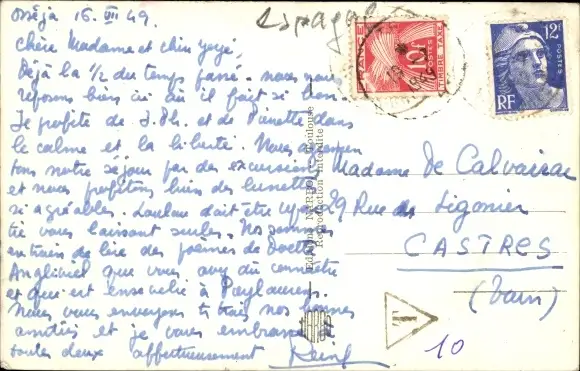 Osséja 16. VIII 49.
Espagne
Chère Madame et chère Yéyé,
Déjà la 1/2 du temps passé. nous nous
reposons bien ici où il fait si bon.
Je profite de J. Ph. et de Pierrette dans
le calme et la liberté. Nous
tons notre séjour par des excursions
et nous profitons bien des
si agréables. doit être
vous laissant seules. Nos sommes
en train de lire des poèmes de
que vous avez dû connaître
et qui est ensevelie à Puylaurens.
Nous vous envoyons très nos bonnes
amitiés et je vous embrasse
toutes deux affectueusement
Madame De Calvairac
29 Rue de Ligonier
CASTRES
(Tarn)
T
10
Toulouse
Reproduction interdite
FRANCE
10F
POSTES
TIMBRE TAXE
12F
POSTES
RF